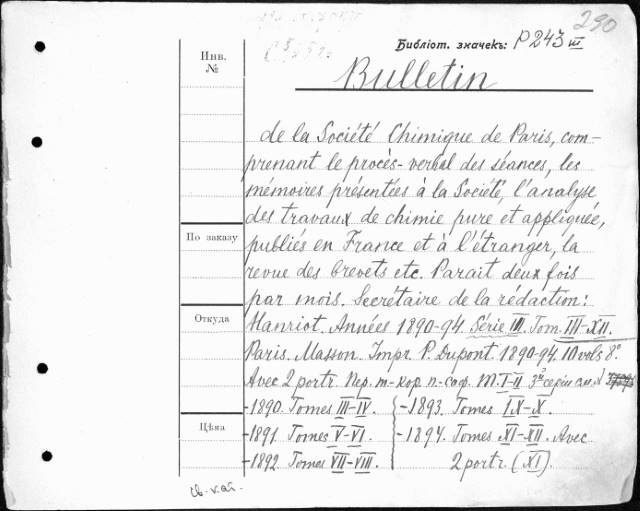 290
Библіот. значекъ: P 243 III
Инв.
№
Bulletin
de la Société Chimique de Paris, com-
prenant le procès-verbal des séances, les
mémoires présentées à la Société, l'analyse
des travaux de chimie pure et appliquée,
По заказу
publiés en France et à l'étranger, la
revue des brevets etc. Parait deux fois
par mois. Secrétaire de la rédaction:
Откуда
Hanriot. Années 1890-94. Série III. Tom. III-XII.
Paris. Masson. Impr. P. Dupont. 1890-94. 10 vols 8°.
Avec 2 portr. Пер. т-кор п-саф. Т. I-II 3й серіи см. №
-1890. Tomes III-IV. -1893. Tomes IX-X.
Цѣна
-1891. Tomes V-VI. -1894. Tomes XI-XII. Avec
-1892. Tomes VII-VIII. 2 portr. (XI).
св. кат.